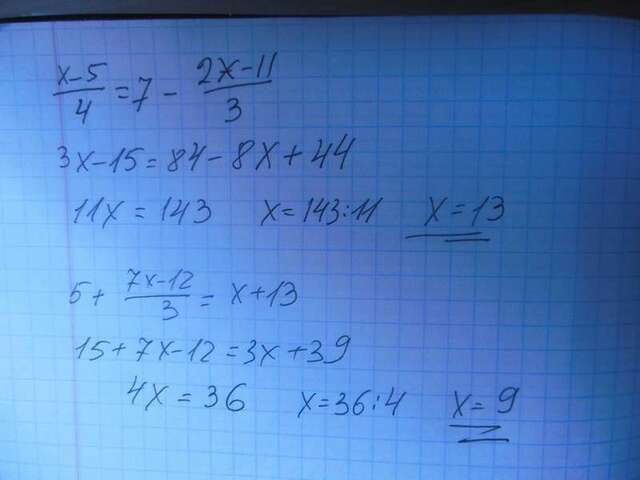 x-5/4 = 7 - 2x-11/3
3x-15=84-8x+44
11x = 143 x=143:11 x=13
5+ 7x-12/3 = x+13
15+7x-12=3x+39
4x = 36 x=36:4 x=9